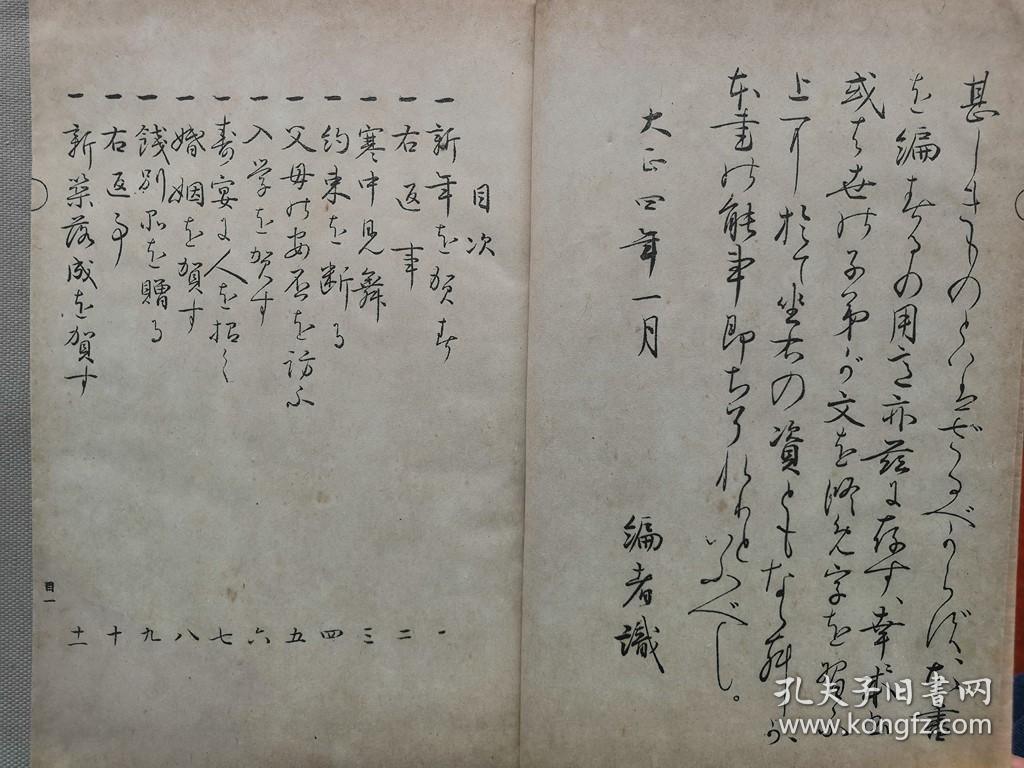 甚しきものといはざるべからず、本書
を編するの用意亦茲に存す、幸に
或は世の子弟が文を修め字を習ふ
上に於て坐右の資ともならば
本書の能事即ち了れりといふべし。
大正四年一月
編者識
目次
一 新年を賀す 一
一 右返事 二
一 寒中見舞 三
一 約束を断る 四
一 父母の安否を訪ふ 五
一 入学を賀す 六
一 寿宴に人を招く 七
一 婚姻を賀す 八
一 餞別品を贈る 九
一 右返事 十
一 新築落成を賀す 十一
目一
孔夫子旧书网
www.kongfz.com